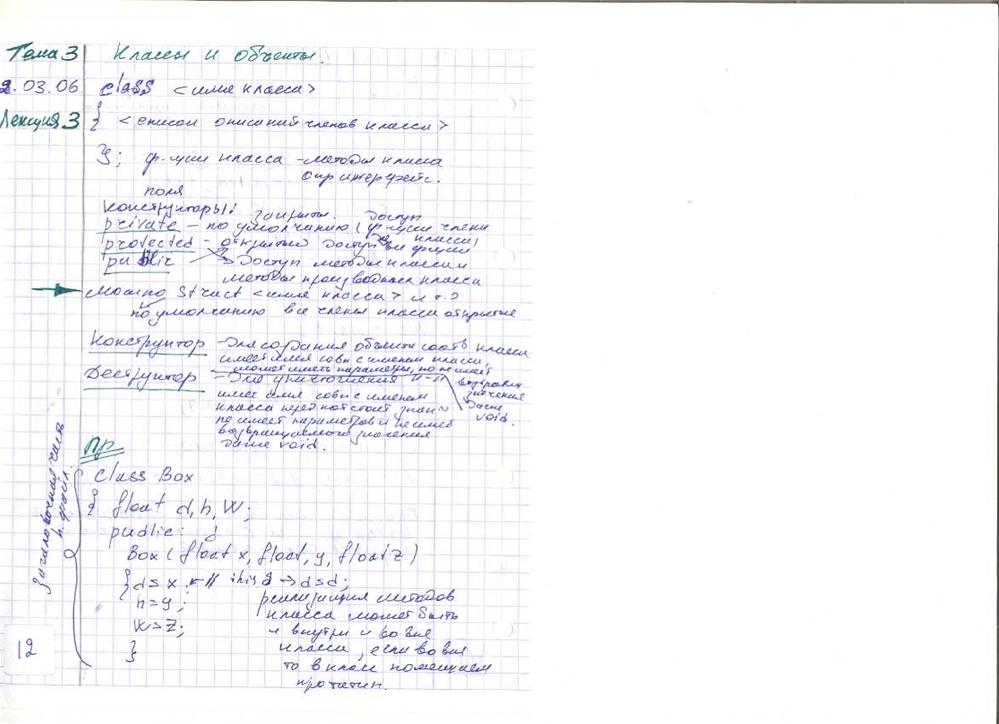 Тема 3 Классы и объекты.
2.03.06 class <имя класса>
Лекция 3 { <список описаний членов класса>
}; ф-ции класса - методы класса
опр интерфейс.
поля
Конструкторы: закрыты. Доступ
private - по умолчанию (ф-ции члены класса)
protected - открытый доступ все функции
public → Доступ методы класса и
методы производных класса
→ Можно struct <имя класса> и т.д
по умолчанию все члены класса открытые
Конструктор - для создания объекта соотв класса
имеет имя совп с именем класса,
может иметь параметры, но не имеет
возвращ значения даже void.
Деструктор - для уничтожения -"-
имеет имя совп с именем
класса перед кот стоит знак ~
не имеет параметров и не имеет
возвращаемого значения
даже void.
Пр
заголовочная часть
h. файл.
class Box
{ float d, h, w;
public: d
Box (float x, float, y, float z)
{ d = x ; ←// this d → d = d;
h = y ;
w = z;
}
реализация методов
класса может быть
и внутри и во вне
класса, если во вне
то в класс помещаем
прототип.
12